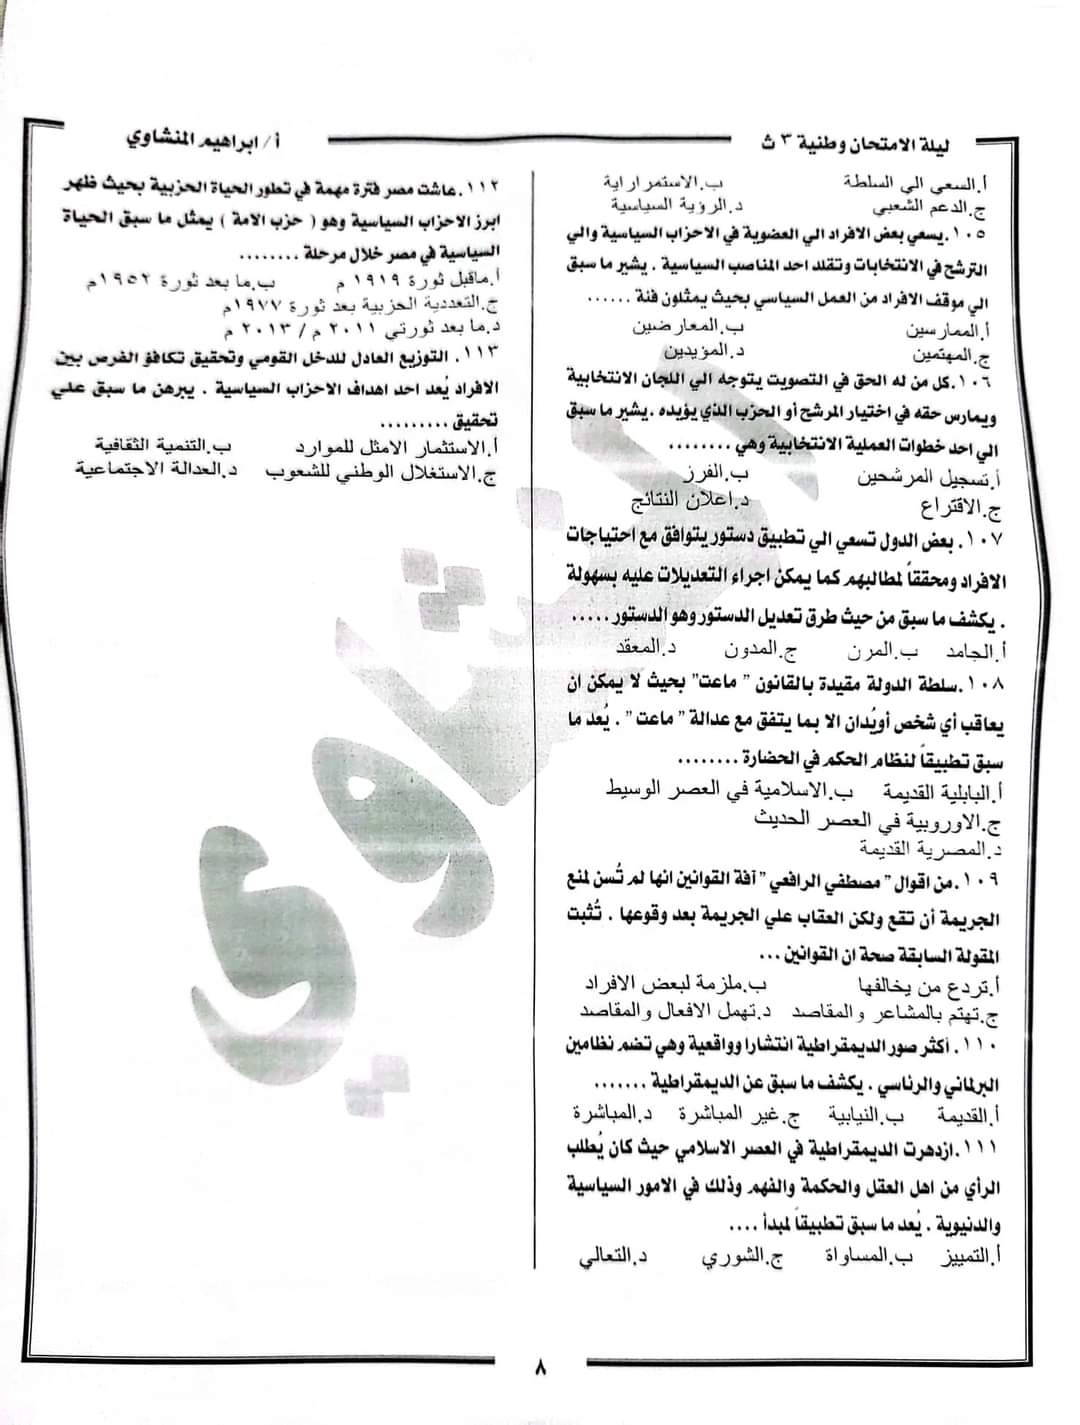 ليلة الامتحان وطنية ٣ ث
أ/ ابراهيم المنشاوي
أ.السعي الي السلطة ب.الاستمرارية
ج.الدعم الشعبي د.الرؤية السياسية
١٠٥.يسعي بعض الافراد الي العضوية في الاحزاب السياسية والي
الترشح في الانتخابات وتقلد احد المناصب السياسية . يشير ما سبق
الي موقف الافراد من العمل السياسي بحيث يمثلون فئة ......
أ.الممارسين ب.المعارضين
ج.المهتمين د.المؤيدين
١٠٦.كل من له الحق في التصويت يتوجه الي اللجان الانتخابية
ويمارس حقه في اختيار المرشح أو الحزب الذي يؤيده .يشير ما سبق
الي احد خطوات العملية الانتخابية وهي ........
أ.تسجيل المرشحين ب.الفرز
ج.الاقتراع د.اعلان النتائج
١٠٧. بعض الدول تسعي الي تطبيق دستور يتوافق مع احتياجات
الافراد ومحققاً لمطالبهم كما يمكن اجراء التعديلات عليه بسهولة
. يكشف ما سبق من حيث طرق تعديل الدستور وهو الدستور .....
أ.الجامد ب.المرن ج.المدون د.المعقد
١٠٨.سلطة الدولة مقيدة بالقانون " ماعت" بحيث لا يمكن ان
يعاقب أي شخص أويُدان الا بما يتفق مع عدالة " ماعت " . يُعد ما
سبق تطبيقاً لنظام الحكم في الحضارة ........
أ.البابلية القديمة ب.الاسلامية في العصر الوسيط
ج.الاوروبية في العصر الحديث
د.المصرية القديمة
١٠٩.من اقوال " مصطفي الرافعي " آفة القوانين انها لم تُسن لمنع
الجريمة أن تقع ولكن العقاب علي الجريمة بعد وقوعها . تُثبت
المقولة السابقة صحة ان القوانين ...
أ.تردع من يخالفها ب.ملزمة لبعض الافراد
ج.تهتم بالمشاعر والمقاصد د.تهمل الافعال والمقاصد
١١٠. أكثر صور الديمقراطية انتشارا وواقعية وهي تضم نظامين
البرلماني والرئاسي . يكشف ما سبق عن الديمقراطية .......
أ.القديمة ب.النيابية ج.غير المباشرة د.المباشرة
١١١.ازدهرت الديمقراطية في العصر الاسلامي حيث كان يُطلب
الرأي من اهل العقل والحكمة والفهم وذلك في الامور السياسية
والدنيوية . يُعد ما سبق تطبيقاً لمبدأ ....
أ.التمييز ب.المساواة ج.الشوري د.التعالي
١١٢.عاشت مصر فترة مهمة في تطور الحياة الحزبية بحيث ظهر
ابرز الاحزاب السياسية وهو ( حزب الامة ) يمثل ما سبق الحياة
السياسية في مصر خلال مرحلة ........
أ.ماقبل ثورة ١٩١٩ م ب.ما بعد ثورة ١٩٥٢م
ج.التعددية الحزبية بعد ثورة ١٩٧٧م
د.ما بعد ثورتي ٢٠١١ م / ٢٠١٣ م
١١٣. التوزيع العادل للدخل القومي وتحقيق تكافؤ الفرص بين
الافراد يُعد احد اهداف الاحزاب السياسية . يبرهن ما سبق علي
تحقيق .........
أ.الاستثمار الامثل للموارد ب.التنمية الثقافية
ج.الاستغلال الوطني للشعوب د.العدالة الاجتماعية
المنشاوي
٨